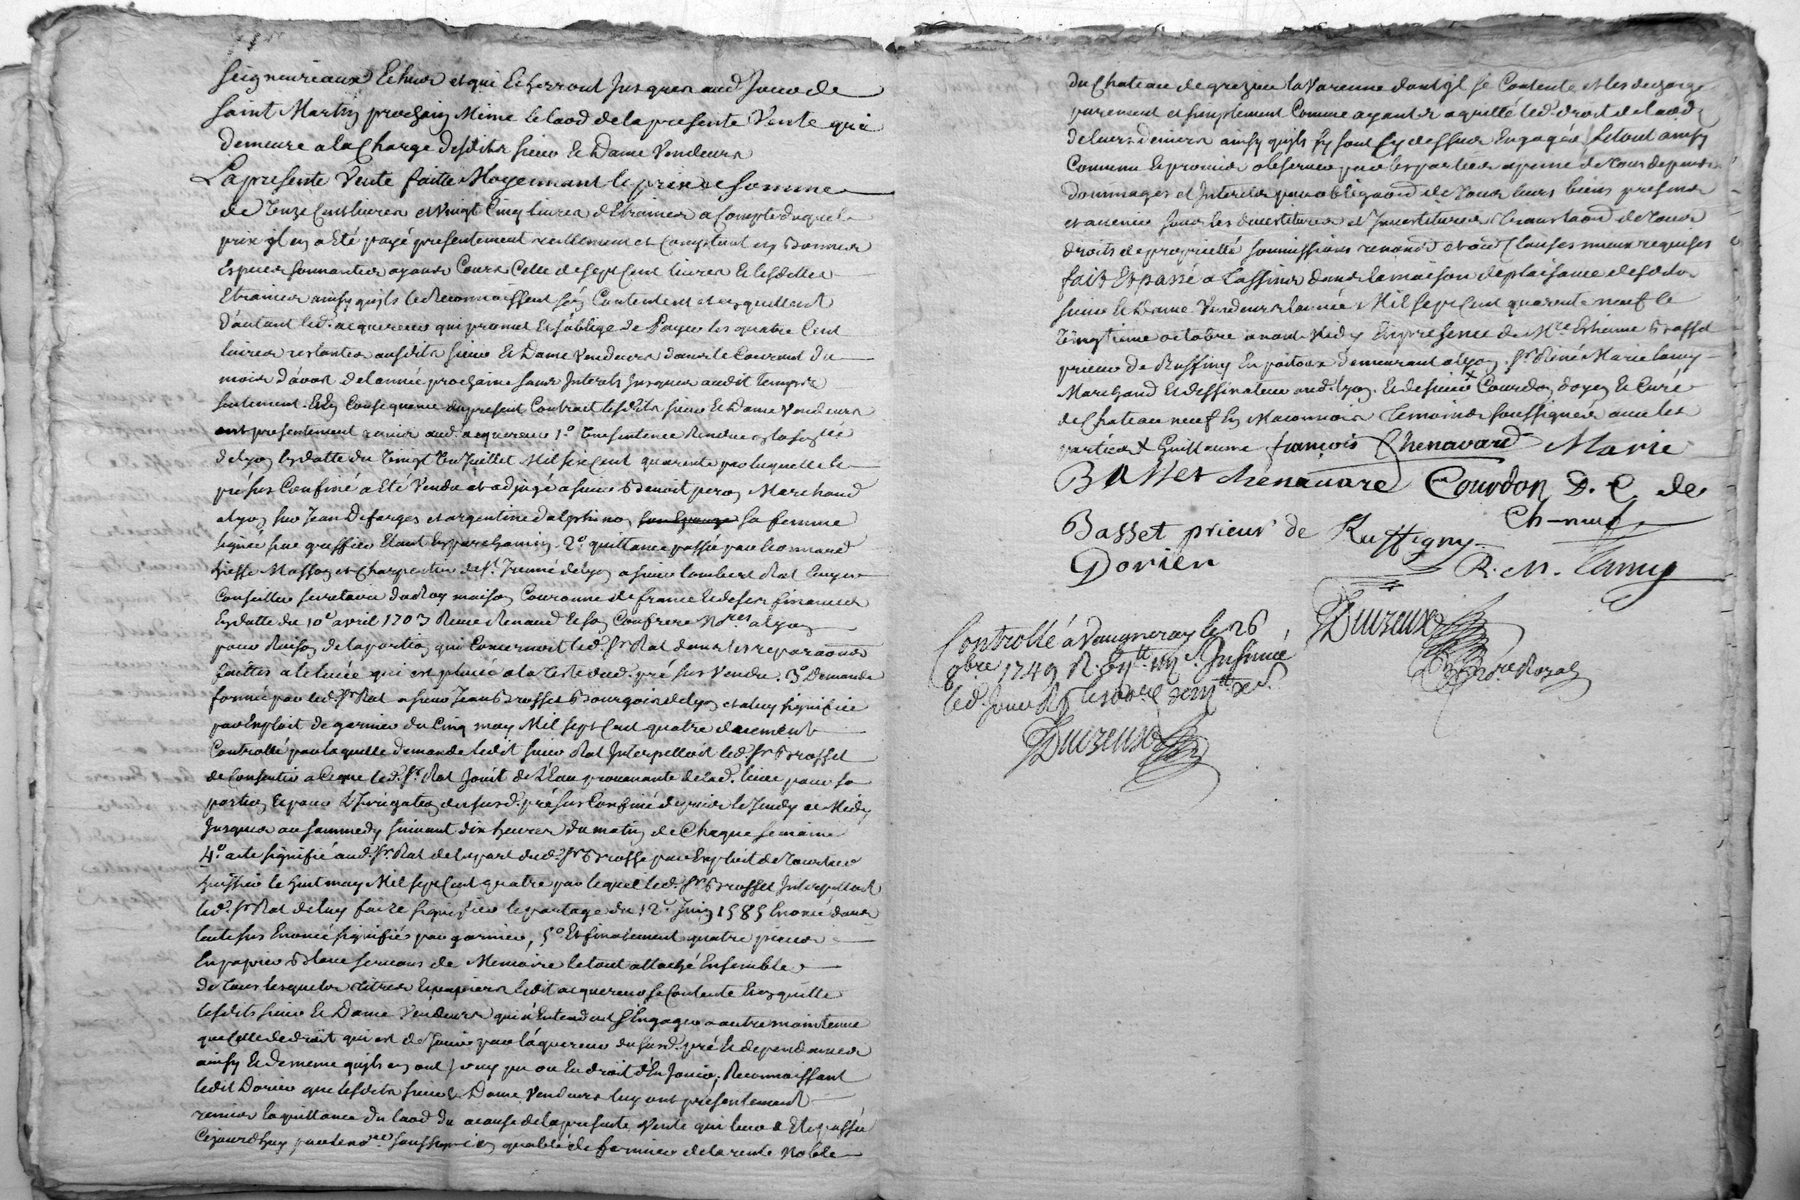 seigneuriaux Echus et qui Echerront Jusques aud. Jour de
saint Martin prochain Même le laod de la presente Vente qui
demeure a la Charge desdits sieur Et Dame Vendeurs
La presente Vente faitte Moyennant le prix et somme
de onze Cent livres et Vingt Cinq livres d'Etraines a Compte duquel
prix il en a Eté payé presentement reellement et Comptant en bonnes
Especes sonnantes ayant Cours Celle de sept Cent livres Et lesdittes
Etraines ainsy qu'ils le Reconnaissent s'en Contentent et en quittent
d'autant led. acquereur qui promet Et s'oblige de Payer les quatre Cent
livres restantes ausdits sieur Et Dame Vendeurs dans le Courant du
mois d'aoust de l'année prochaine sans Interets Jusques audit Temps
seulement. Et en Consequence du present Contract lesdits sieur Et Dame Vendeurs
ont presentement remis aud. acquereur 1.º Une sentence Rendue en la
de Lyon en datte du Vingt Un Juillet Mil six Cent quarante par laquelle le
pré sus Confiné a Eté Vendu et adjugé a sieur Benoit peron Marchand
a Lyon sur Jean Defarges et argentine dalphinon sa femme
signée sur greffier Etant En parchemin. 2.º quittance passée par Leonard
Masson et Charpentier de St. Irenné de Lyon a sieur lambert Rat Ecuyer
Conseiller secretaire du Roy maison Couronne de france Et de ses finances
En datte du 10e avril 1703 Reçue Renaud Et son Confrere Nores a Lyon
pour Raison de la portion qui Concernoit led. Sr Rat dans les reparations
faittes a la levée qui est placée a la Teste dud. pré sus Vendu. 3.º Demande
formée par led. Sr Rat a sieur Jean Brosset Bourgois de Lyon et a luy signifiée
par Exploit de garnier du Cinq may Mil sept Cent quatre duement
Controllé par laquelle demande ledit sieur Rat Interpelloit led. Sr Brosset
de Consentir a Ce que led. Sr Rat Jouit de l'Eau provenante de lad. levée pour sa
portion Et pour l'Irrigation du susd. pré sus Confiné depuis le Jeudy a Midy
Jusques au sammedy suivant dix heures du matin de Chaque semaine
4.º acte signifié aud. Sr Rat de la part dud. Sr Brosse par Exploit de
huissier le huit may Mil sept Cent quatre par lequel led. Sr Brosset Interpelloit
led. Sr Rat de luy faire signifier le partage du 12e Juin 1585 Enoncé dans
l'acte sus Enoncé signifié par garnier, 5.º Et finalement quatre pieces
En papier Blanc servans de Memoire le tout attaché Ensemble
De Tous lesquels Titres Et papiers ledit acquereur se Contente Et en quitte
lesdits sieur Et Dame Vendeurs qui n'Entendent s'Engager a autre maintenue
que Celle de droit qui est de Jouir par l'aquereur du susd. pré Et dependances
ainsy Et de meme qu'ils en ont Jouy pu ou Eu droit d'En Jouir, Reconnaissant
ledit Dorier que lesdits sieur Et Dame Vendeurs luy ont presentement
remis la quittance du laod du a cause de la presente Vente qui leur a Eté passée
Cejourd'huy par le nore soussigné en qualité de fermier de la rente Noble
du Chateau de grezieu la Varenne dont il se Contente et les decharge
purement et simplement Comme ayant aquitté led. droit de laod
de leurs deniers ainsy qu'ils s'y sont Cy dessus Engagés, Le tout ainsy
Convenu Et promis observer par les parties a peine de tous depens
Dommages et Interets par obligaon de Tous leurs biens presens
et avenir sous les devestitures et Investitures Translaon de Tous
droits de proprieté soumissions renonons et autres Clauses mieux requises
fait Et passé a Tassins dans la maison de plaisance desdits
sieur Et Dame Vendeurs l'année Mil sept Cent quarente neuf le
Vingtieme octobre avant Midy En presence de Mre Estienne Basset
prieur de Ruffigny En poitoux demeurant a Lyon. Sr René Marie lamy
Marchand Et dessinateur aud. Lyon. Et de sieur x Courdon doyen Et Curé
de Chateauneuf en Maconnois Temoins soussignés avec les
parties x Guillaume françois Chenavard Marie
Basset chenavard Courdon D. C. de
Ch-neuf
Basset prieur de Ruffigny
Dorier R. M. Lamy
Duizeux
Nore Royal
Controllé a Vaugneray le 26
8bre 1749 R.
led. Jour
Duizeux